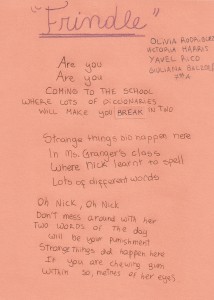 "Frindle"
OLIVIA RODRIGUEZ
VICTORIA HARRIS
YAVEL RICO
GIULIANA
Are you
Are you
COMING TO THE SCHOOL
WHERE LOTS OF DICCONARIES
WILL MAKE YOU BREAK IN TWO
Strange things did happen here
In Ms. Granger's class
Where Nick learnt to spell
Lots of different words
Oh Nick, Oh Nick
Don't mess around with her
TWO WORDS OF THE DAY
will be your punishment
Strange things did happen here
If you are chewing gum
Within 50, metres of her eyes